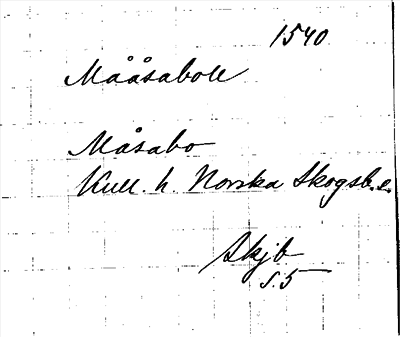 1540
Mååsaboll
Måsabo
Kull. h. Norska Skogsb.
Skjb
s. 5